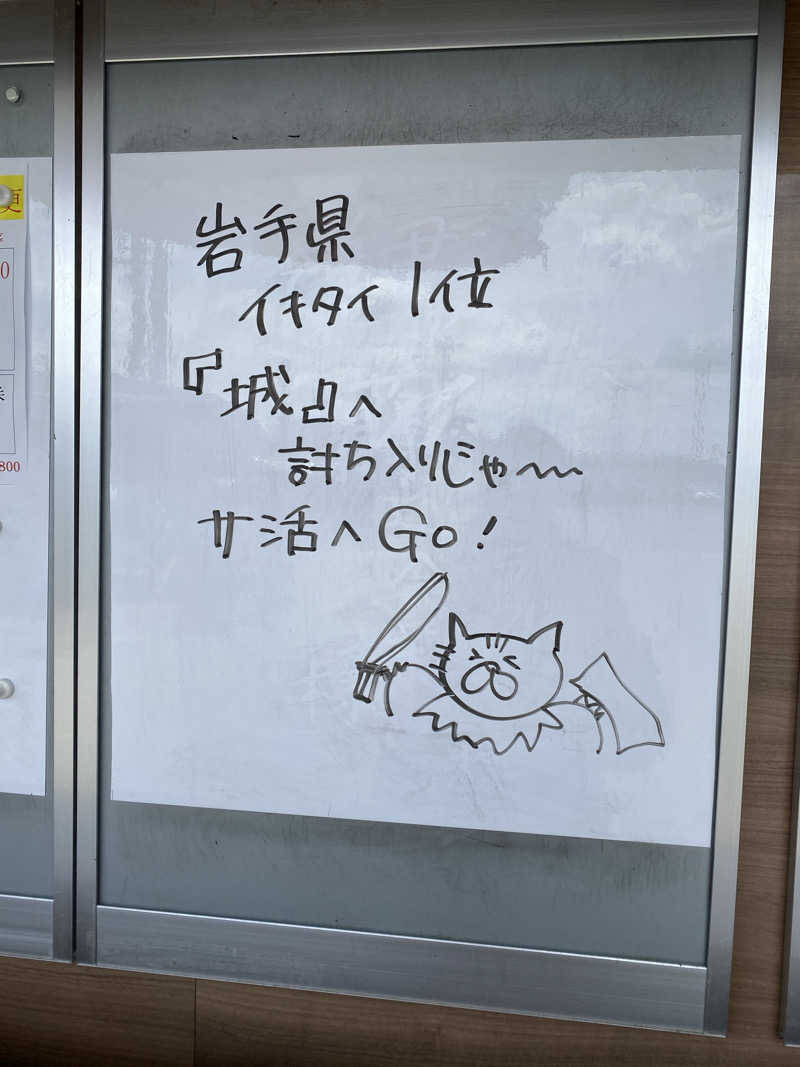 更
0
800
岩手県
イキタイ1位
『城』へ
討ち入りじゃ〜
サ活へGo!